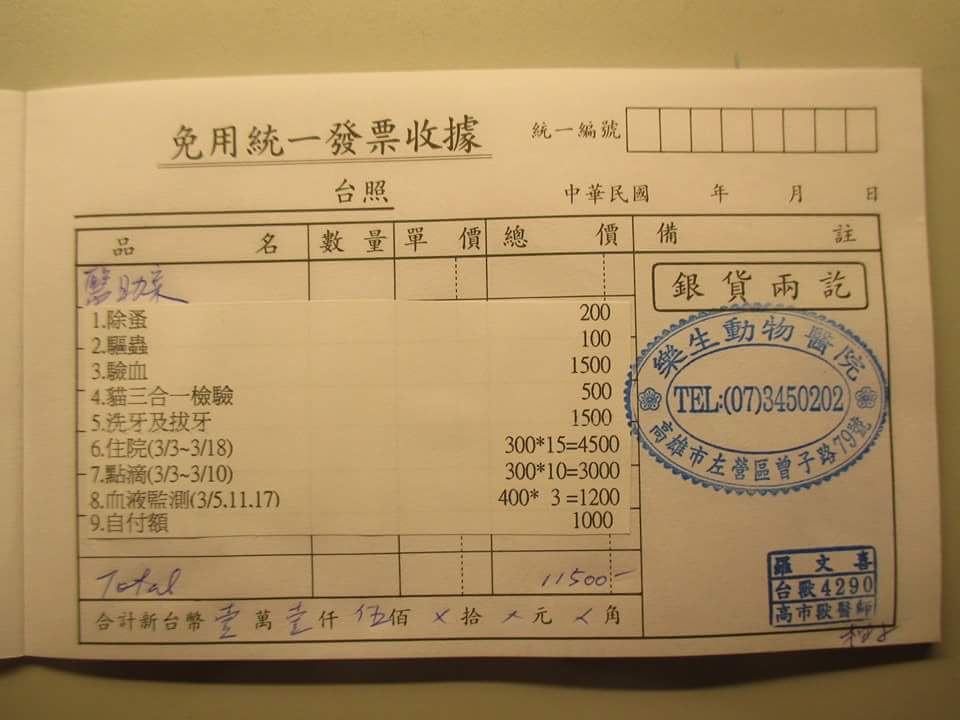 免用統一發票收據
統一編號
台照
中華民國 年 月 日
品 名 數 量 單 價 總 價 備 註
醫助
銀貨兩訖
1.除蚤 200
2.驅蟲 100
3.驗血 1500
4.貓三合一檢驗 500
5.洗牙及拔牙 1500
6.住院(3/3~3/18) 300*15=4500
7.點滴(3/3~3/10) 300*10=3000
8.血液監測(3/5,11,17) 400* 3 =1200
9.自付額 1000
樂生動物醫院
TEL:(07)3450202
高雄市左營區曾子路79號
Total 11500-
合計新台幣 壹 萬 壹 仟 伍 佰 × 拾 × 元 × 角
羅文喜
台獸4290
高市獸醫師